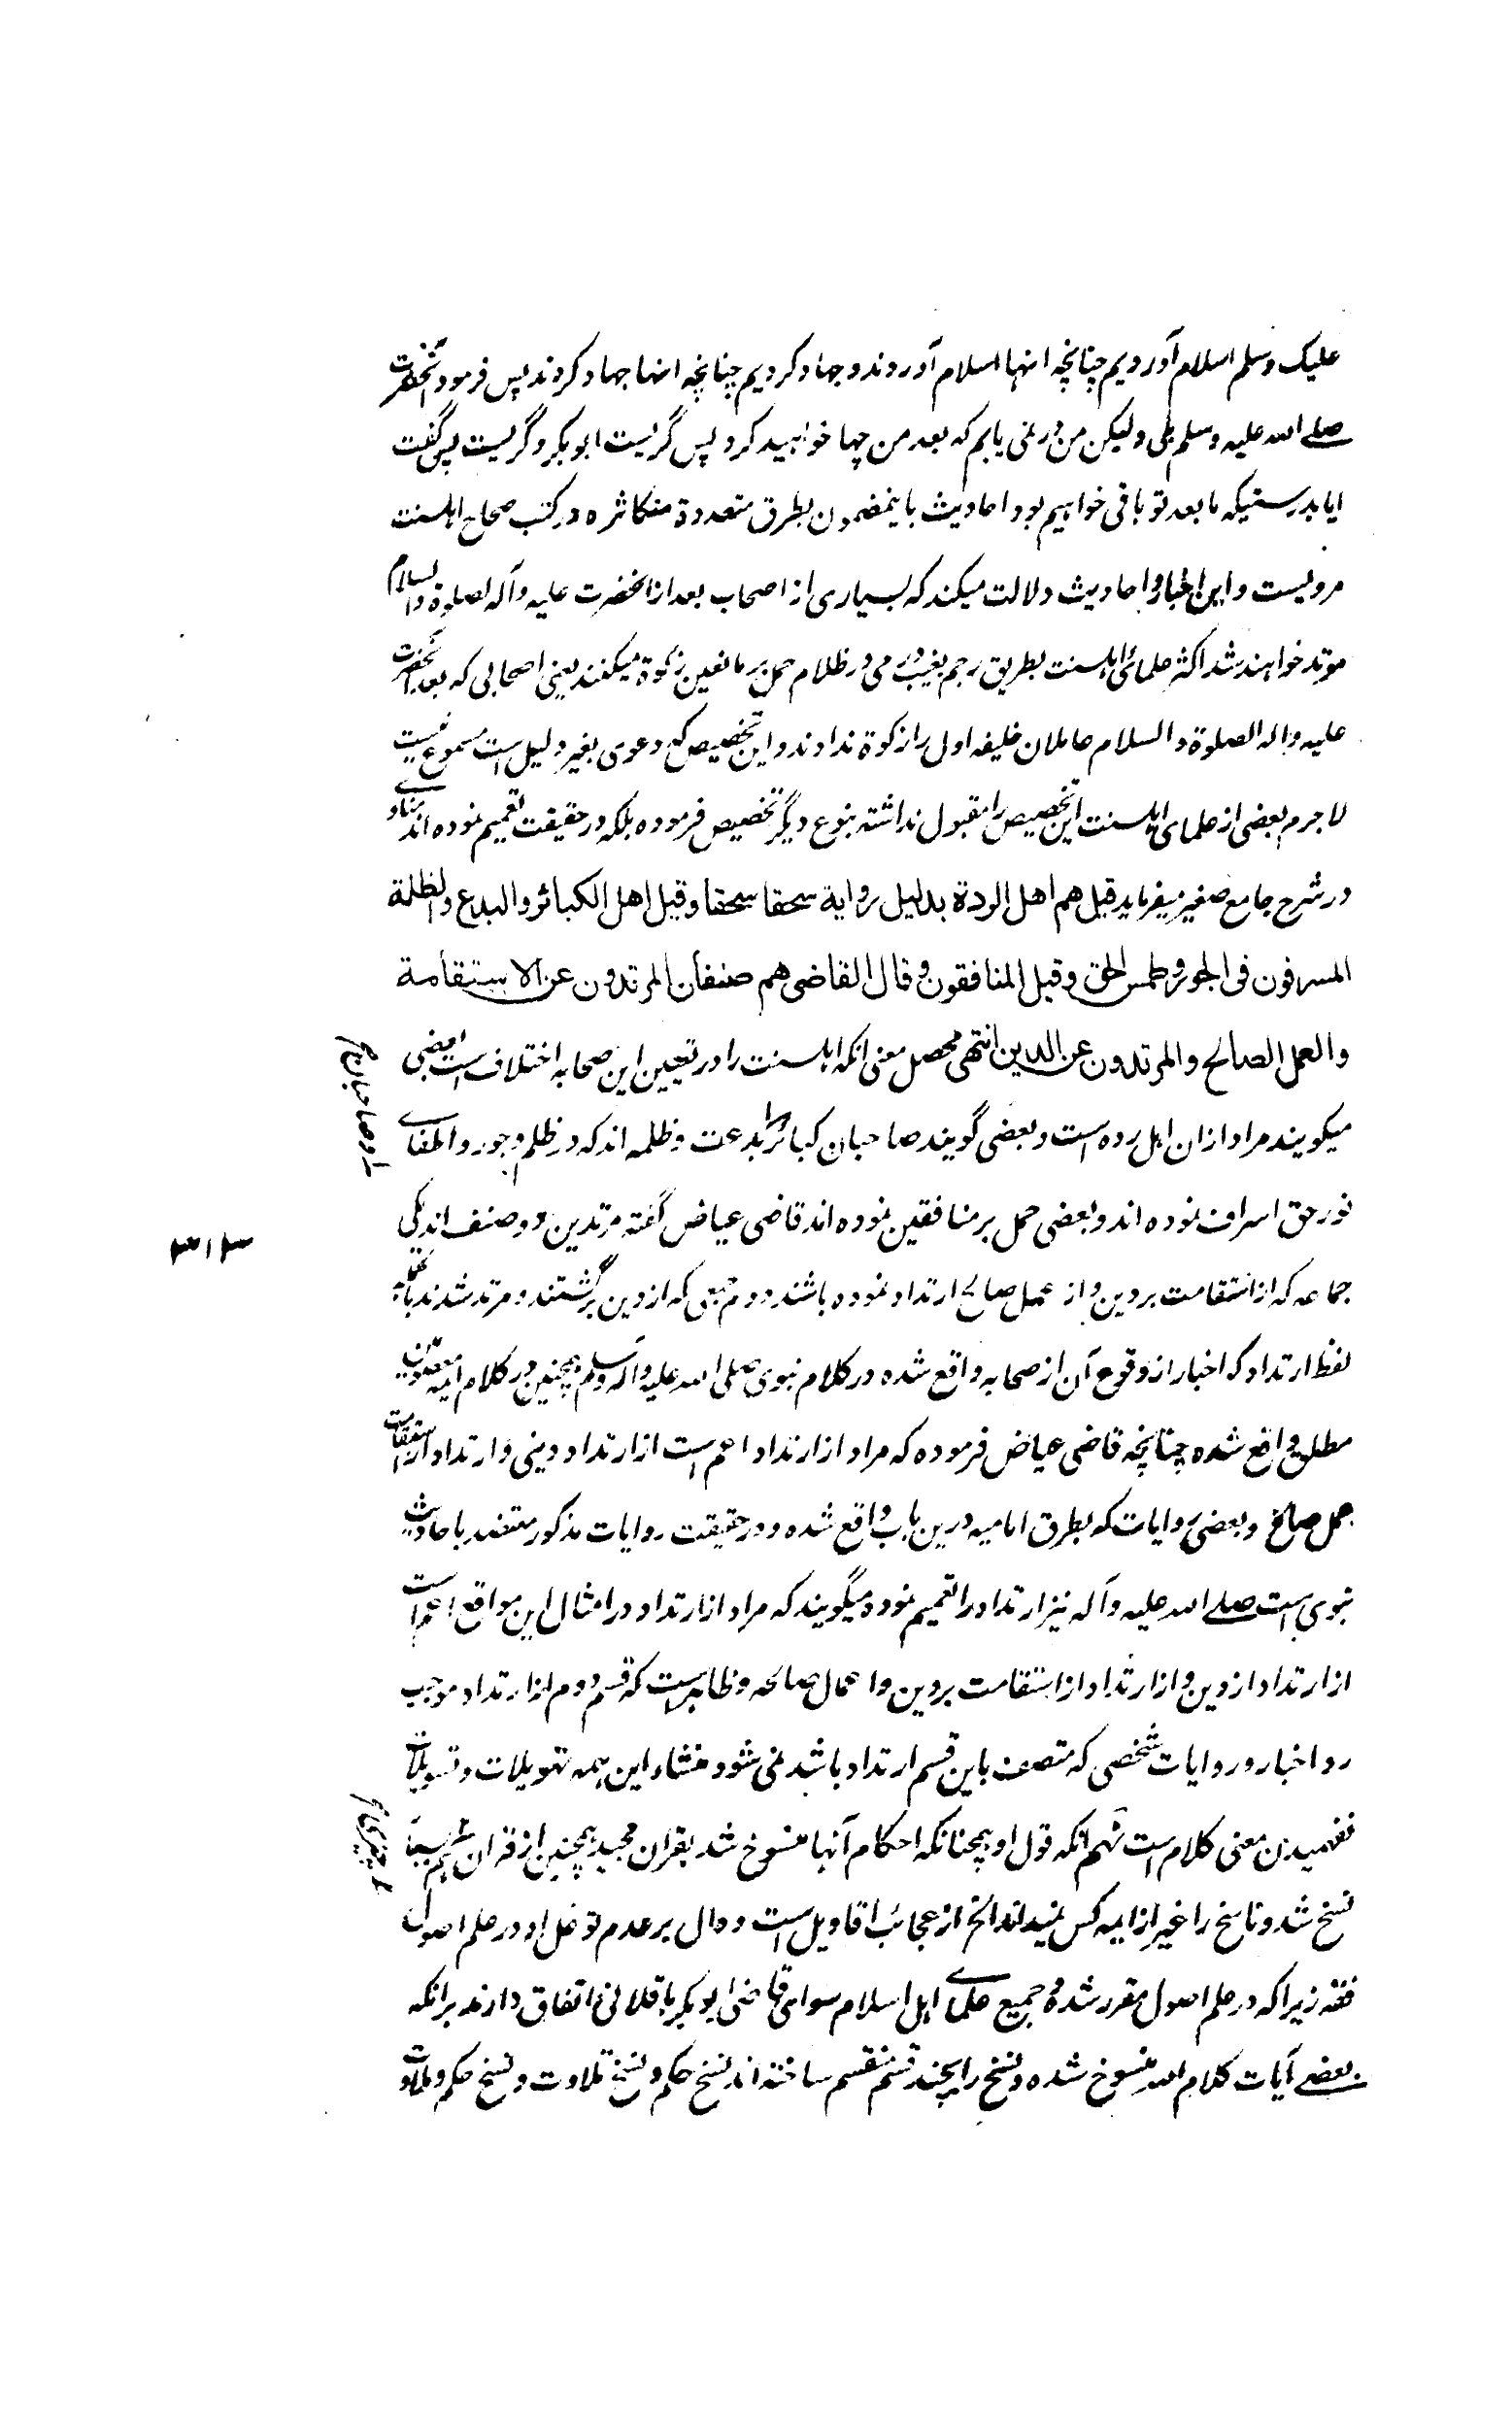 علیک وسلم اسلام آوردیم چنانچه اینها اسلام آوردند و جهاد کردیم چنانچه اینها جهاد کردند پس فرمود آنحضرت
صلے الله علیه وسلم بلی ولیکن من در نمی یابم که بعد من چها خواهید کرد پس گریست ابوبکر و گریست پس گفت
ایا بدرستیکه ما بعد تو باقی خواهیم بود و احادیث باینمضمون بطرق متعددة متکاثره در کتب صحاح اهلسنت
مرویست و این اخبار و احادیث دلالت میکند که بسیاری از اصحاب بعد از انحضرت علیه وآله الصلوة والسلام
مرتد خواهند شد اکثر علمائ اهلسنت بطریق رجم بغیب و رمی در ظلام حمل بر مانعین زکوة میکنند یعنی اصحابی که بعد آنحضرت
علیه واله الصلوة والسلام عاملان خلیفه اول را زکوة ندادند و این تخصیص که دعوی بغیر دلیل است مسموع نیست
لاجرم بعضی از علمای اهلسنت این تخصیص را مقبول نداشته بنوع دیگر تخصیص فرموده بلکه در حقیقت تعمیم نموده اند مناوے
در شرح جامع صغیر میفرماید قیل هم اهل الردة بدلیل روایة سحقا سحقا وقیل اهل الکبائر والبدع والظلمة
المسرفون فی الجور وطمس الحق وقیل المنافقون وقال القاضی هم صنفان المرتدون عن الاستقامة
والعمل الصالح والمرتدون عن الدین انتهی محصل معنی انکه اهلسنت را در تعیین این صحابه اختلاف است بعضی
میگویند مراد ازان اهل رده است و بعضی گویند صاحبان کبائر و بدعت و ظلمه اند که در ظلم و جور و اطفاے
نور حق اسراف نموده اند و بعضی حمل بر منافقین نموده اند قاضی عیاض گفته مرتدین دو صنف اند یکی
جماعه که از استقامت بر دین و از عمل صالح ارتداد نموده باشند دوم جمعی که از دین برگشتند و مرتد شدند بالجمله
لفظ ارتداد که اخبار از وقوع آن از صحابه واقع شده در کلام نبوی صلی الله علیه وآله وسلم همچنین در کلام ایمه معصومین
مطلق واقع شده چنانچه قاضی عیاض فرموده که مراد از ارتداد اعم است از ارتداد دینی و ارتداد از استقامت
بعمل صالح و بعضی روایات که بطرق امامیه درین باب واقع شده و در حقیقت روایات مذکور معتضد باحادیث
نبوی است صلے الله علیه وآله نیز ارتداد را تعمیم نموده میگویند که مراد از ارتداد در امثال این مواقع اعم است
از ارتداد از دین و از ارتداد از استقامت بر دین و اعمال صالحه و ظاهر است که قسم دوم از ارتداد موجب
رد اخبار و روایات شخصی که متصف باین قسم ارتداد باشد نمی شود منشاء این همه تهویلات و تسویلات
نفهمیدن معنی کلام است نهم انکه قول او همچنانکه احکام آنها منسوخ شد بقران مجید همچنین از قران هم
نسخ شد و ناسخ را غیر از ایمه کس نمیداند الخ از عجائب اقاویل است و دال بر عدم توغل او در علم اصول
فقه زیراکه در علم اصول مقرر شده و جمیع علماے اهل اسلام سوای قاضی ابوبکر باقلانی اتفاق دارند برانکه
بعضے آیات کلام الله منسوخ شده و نسخ را بچند قسم منقسم ساخته اند نسخ حکم و نسخ تلاوت و نسخ حکم و تلاوت
۳۱۳